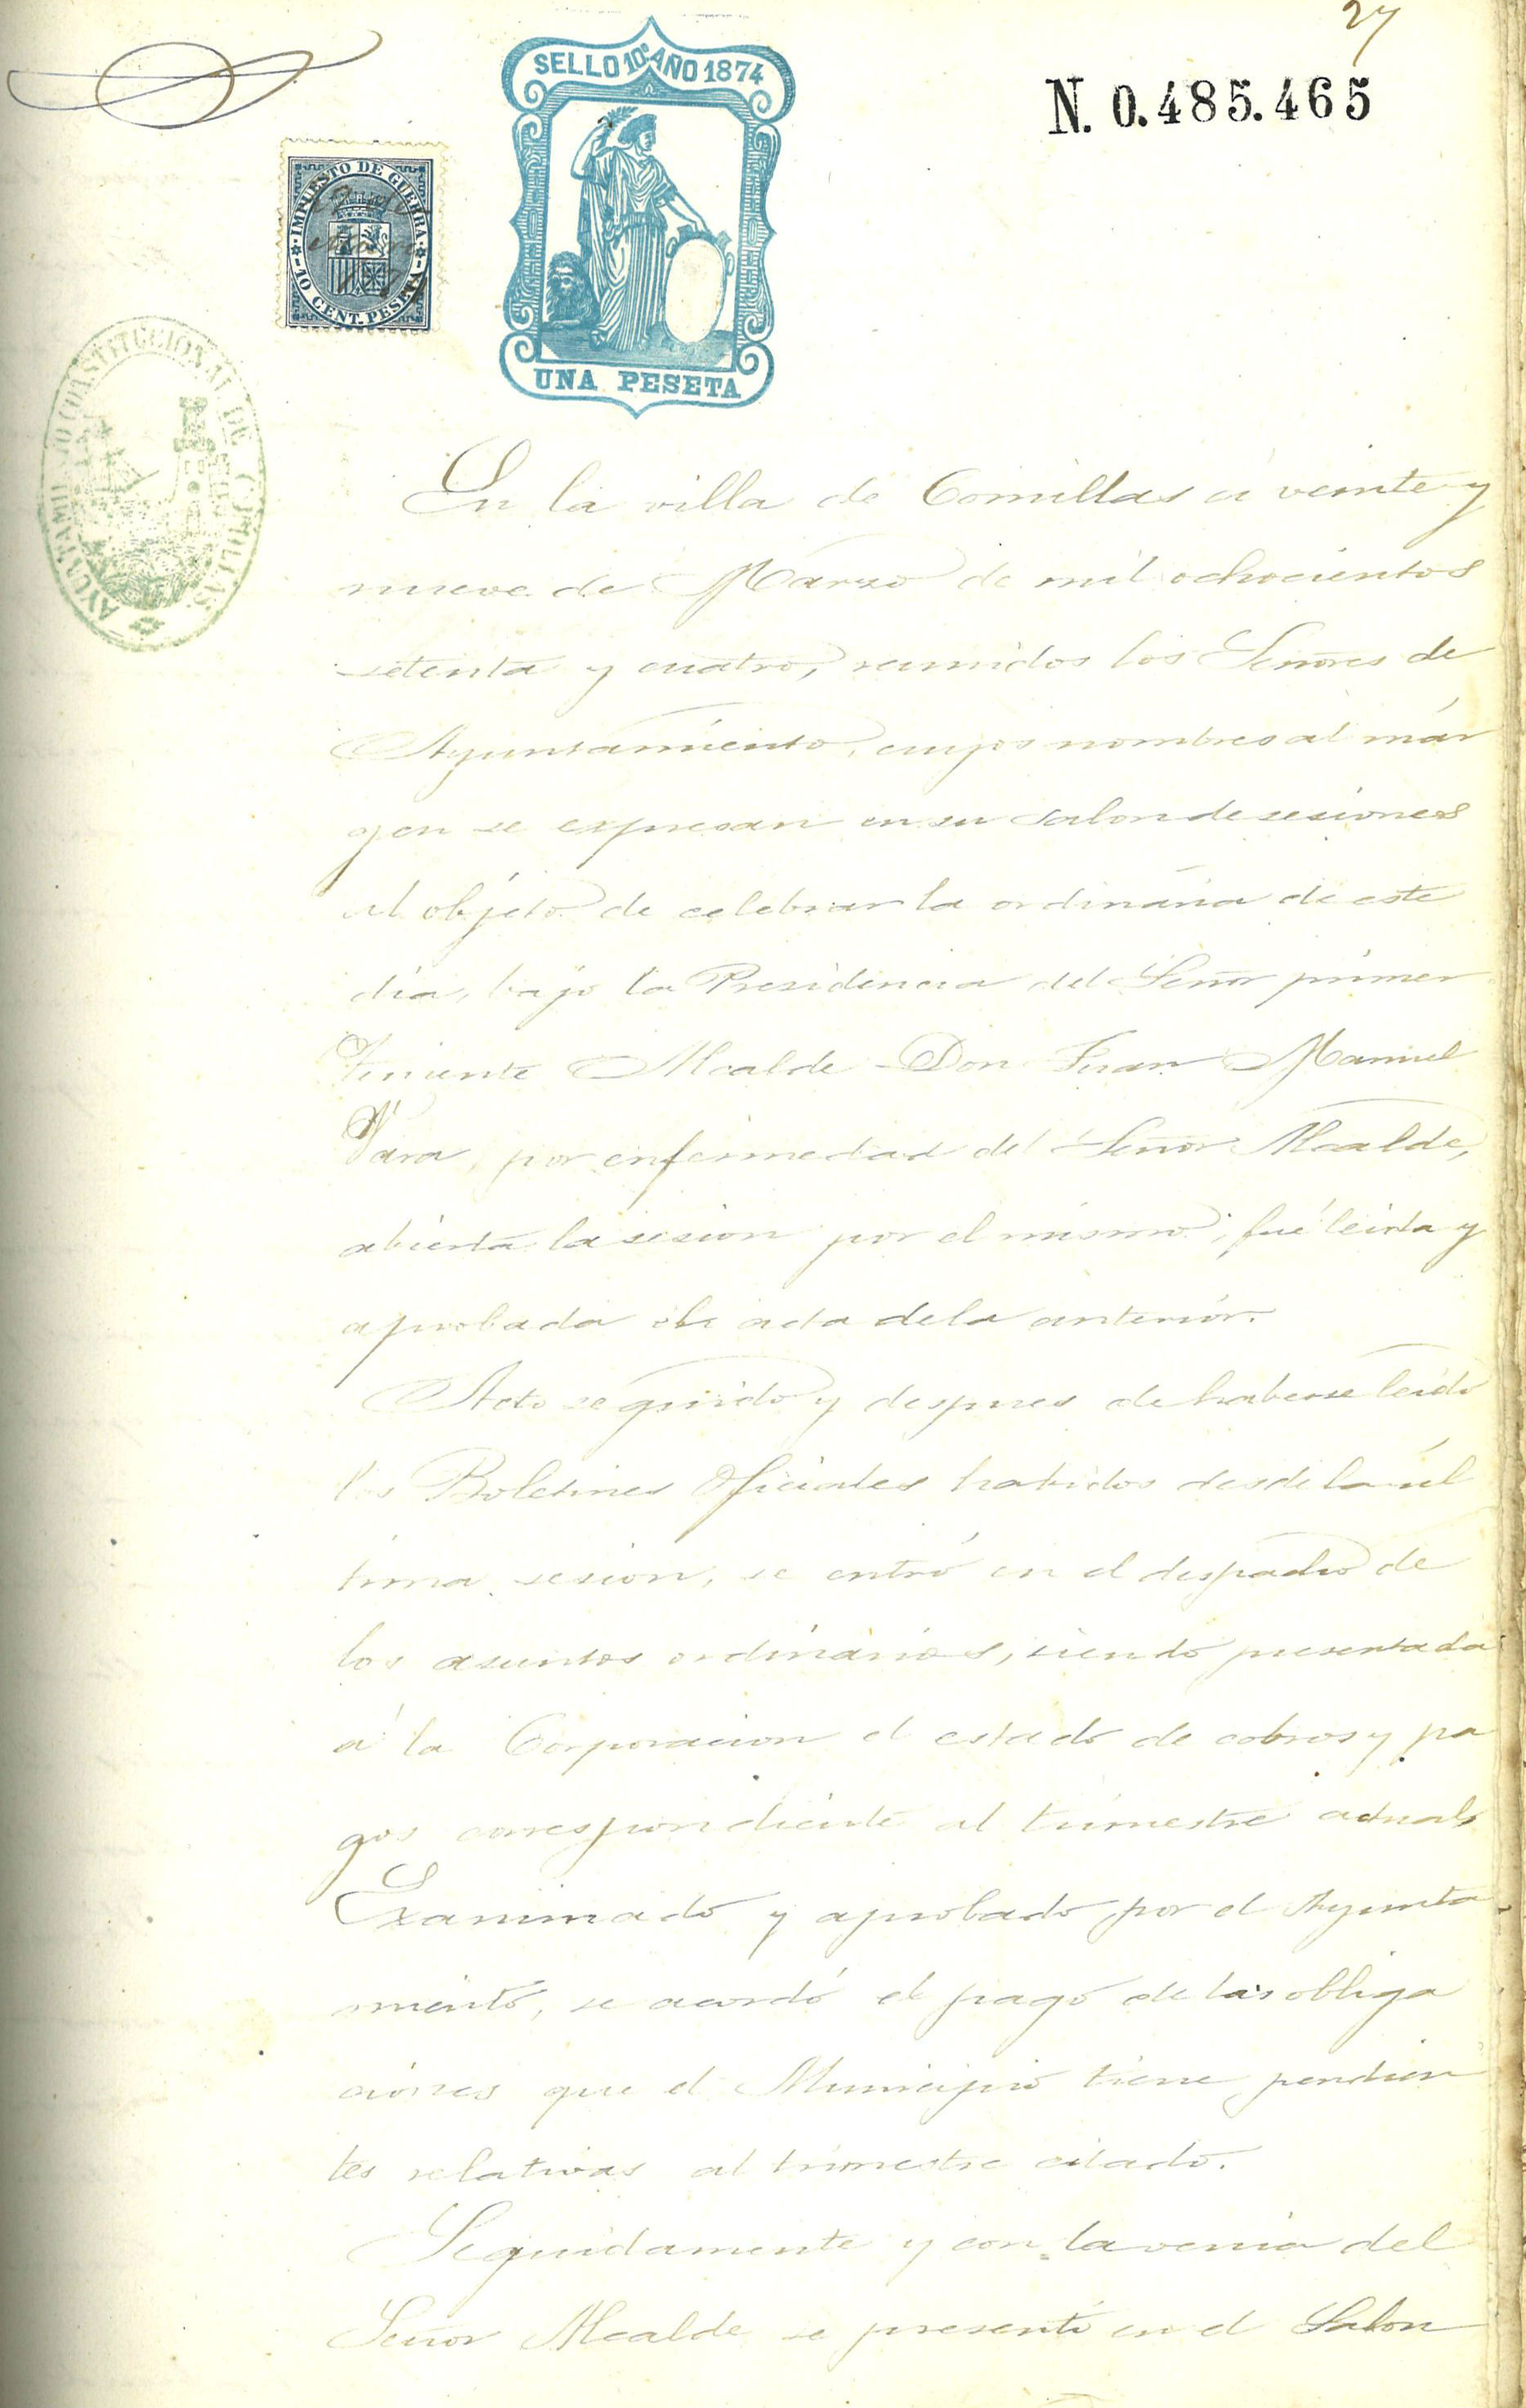 27
SELLO 10º AÑO 1874
N. 0.485.465
IMPUESTO DE GUERRA
10 CENT. PESETA
UNA PESETA
AYUNTAMIENTO CONSTITUCIONAL DE COMILLAS
En la villa de Comillas á veinte y
nueve de Marzo de mil ochocientos
setenta y cuatro, reunidos los Señores de
Ayuntamiento, cuyos nombres al már
gen se expresan en su salon de sesiones
al objeto de celebrar la ordinaria de este
dia, bajo la Presidencia del Señor primer
Teniente Alcalde Don Juan Manuel
Vara, por enfermedad del Señor Alcalde,
abierta la sesion por el mismo, fué leida y
aprobada el acta de la anterior.
Acto seguido y despues de haberse leido
los Boletines Oficiales habidos desde la úl
tima sesion, se entró en el despacho de
los asuntos ordinarios, siendo presentada
á la Corporacion el estado de cobros y pa
gos correspondiente al trimestre actual.
Examinado y aprobado por el Ayunta
miento, se acordó el pago de las obliga
ciones que el Municipio tiene pendien
tes relativas al trimestre citado.
Seguidamente y con la venia del
Señor Alcalde se presentó en el Salon